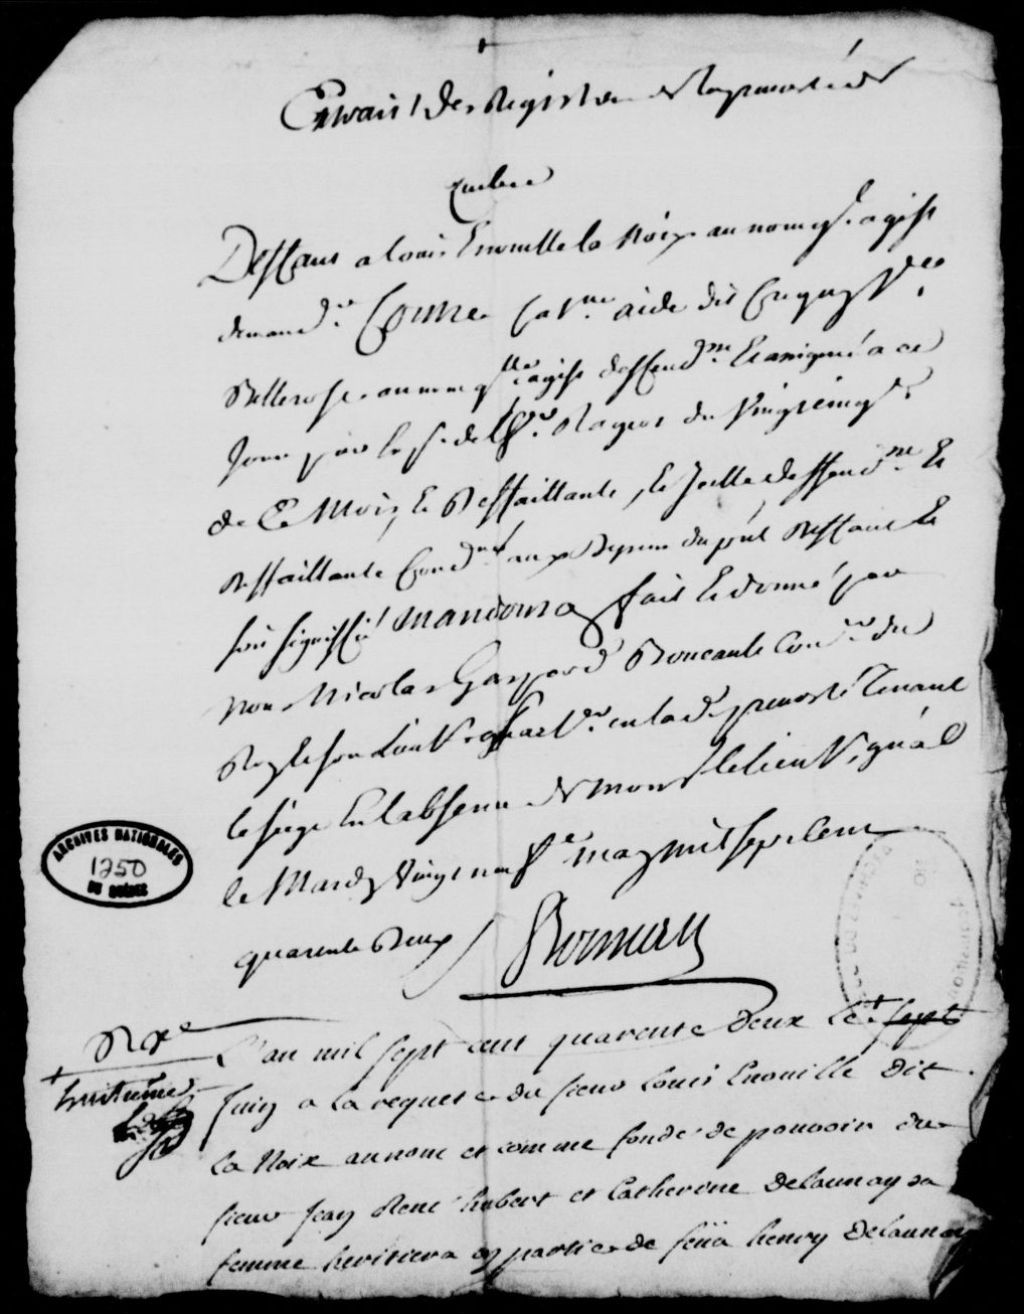 Extrait des Registres de la prevosté de
Quebec
Deffaut a louis Enouille la Noix au nom ql. agist
demand.r Contre la ve. aide dit Crequy
Bellerose au nom qlle agist deffend.sse Et assignée a ce
Jour par le sr. de
de Ce Mois, Et Deffaillante, la de deffend.sse Et
deffaillante Cond.née aux Depens du pnt deffaut Et
soit signiffié Mandons &a fait Et donné par
nous Nicolas Gaspard Boucault Con.er du
Roy Et son Lieut. part.er en lad. prevosté Tenant
le siege En labsence de Mons. le lieut. gnal
le Mardy vingt neuf may mil sept Cent
quarente Deux
Boisseau
ARCHIVES NATIONALES
1250
DU QUEBEC
L'an mil sept cent quarente deux le + sept
+
huitieme
Juin a la requeste du sieur louis Enouille dit
la Noix au nom et comme fondé de pouvoir du
sieur Jean René hubert et Catherine Delaunay sa
femme heritiere en partie de feüe henry Delaunay